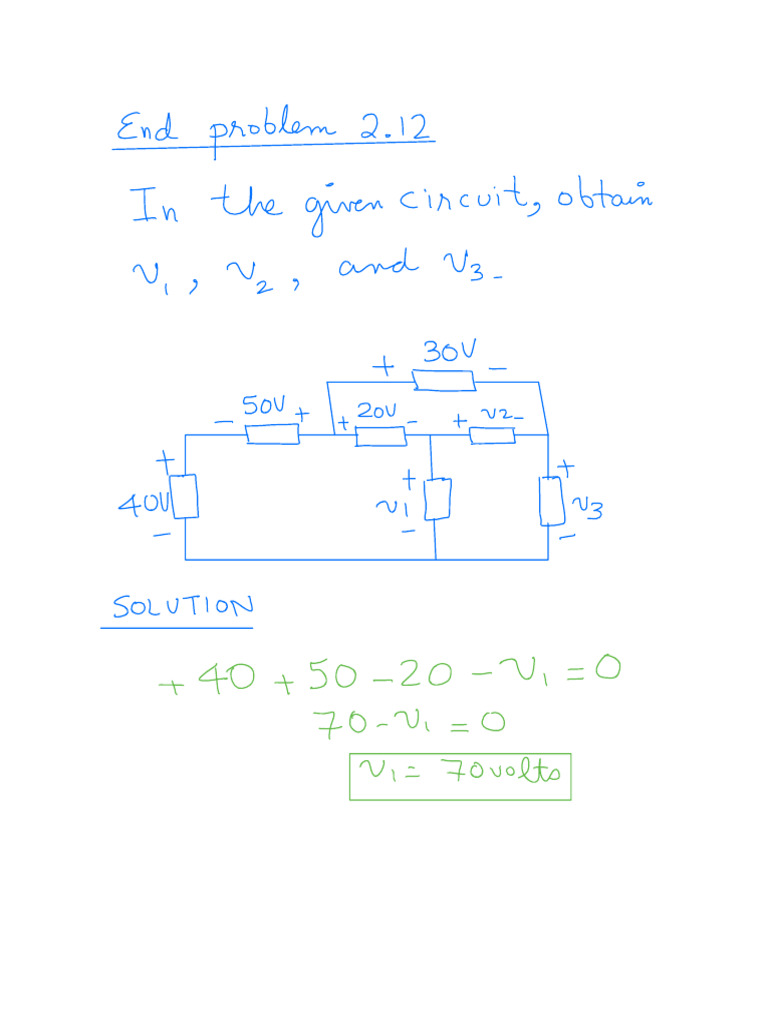 End problem 2.12
In the given circuit, obtain
v1, v2, and v3.
+ 30V -
- 50V + + 20V - + v2 -
+ 40V -
+ v1 -
+ v3 -
SOLUTION
+40 +50 -20 -v1 = 0
70 - v1 = 0
v1 = 70 volts